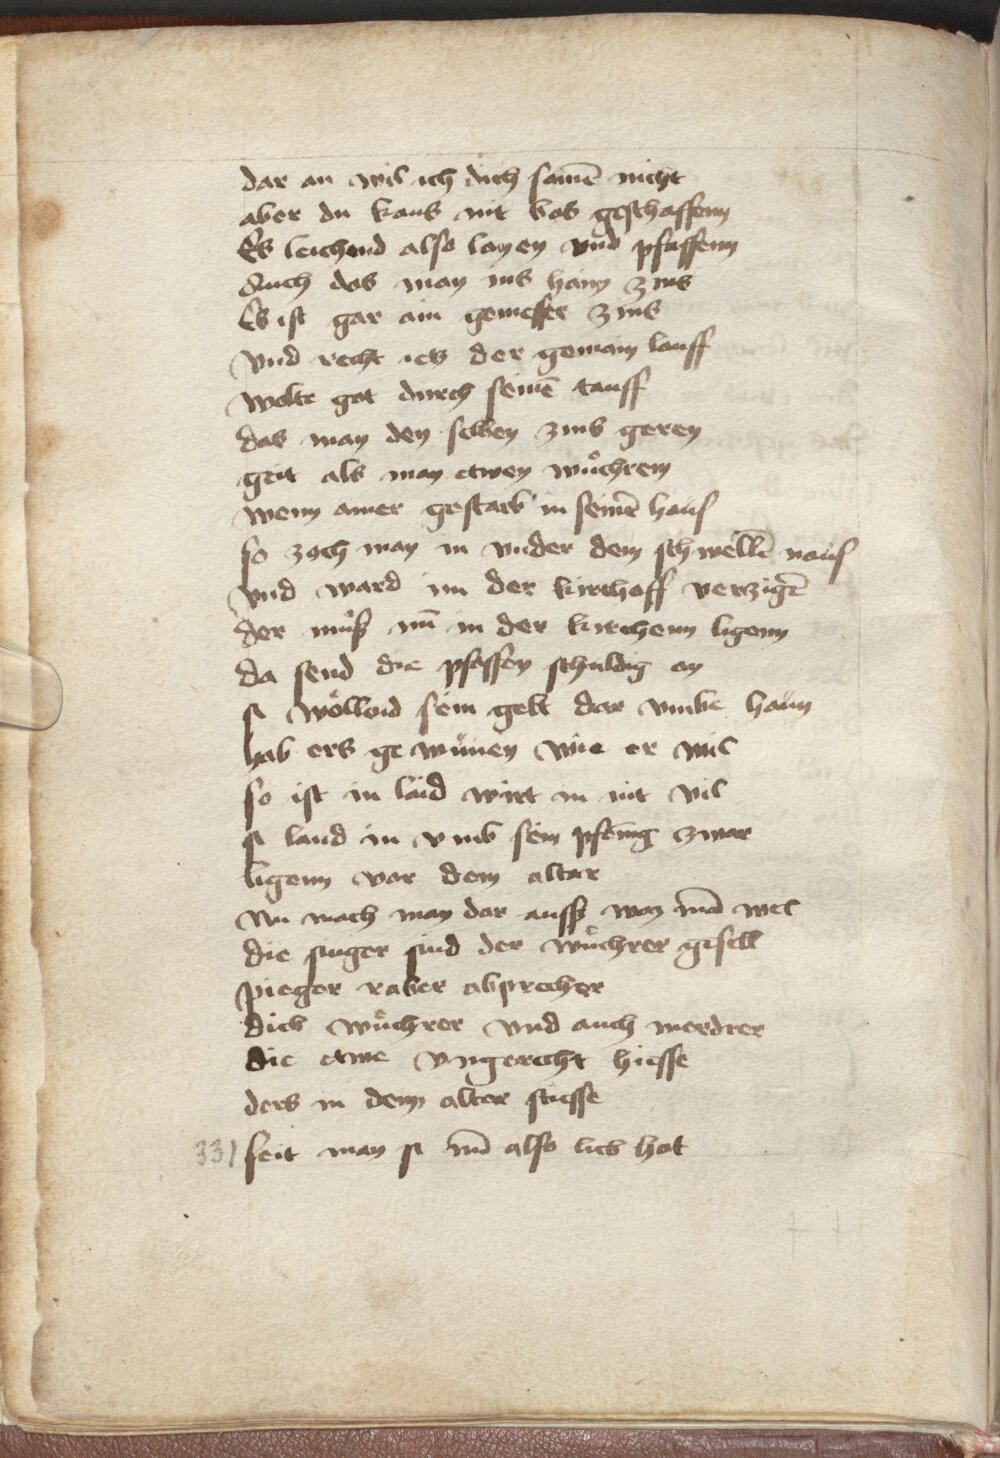 dar an wil ich dich samē nicht
aber du kans nit bas geschaffenn
Es leichend also layen vnd pfaffenn
Auch das man ins haim zins
Es ist gar ain gemesser zins
vnd recht ietz der gemain lauff
wolte got durch seinē tauff
das man den selben zins geren
geit als man etwen wůchrern
wenn ainer gestarb in seinē haus
so zoch man in vnder dem schwellē naus
vnd ward im der kirchoff verzigē
der můß nū in der kirchenn ligenn
da send die pfaffen schuldig an
si wöllend sein gelt dar vmbe haun
hab ers ge wunen wie er wil
so ist in laid wirt in nit vil
si land in vmb sein pfening zwar
ligenn vor dem altar
Nu mach man dar auss waz mā wel
die singer sind der wůchrer gesell
pieger raber absprecher
dieb wůchrer vnd auch merdrer
die etwe vngerecht hiesse
ders in dem alter stiesse
331 seit man si nū also lieb hat